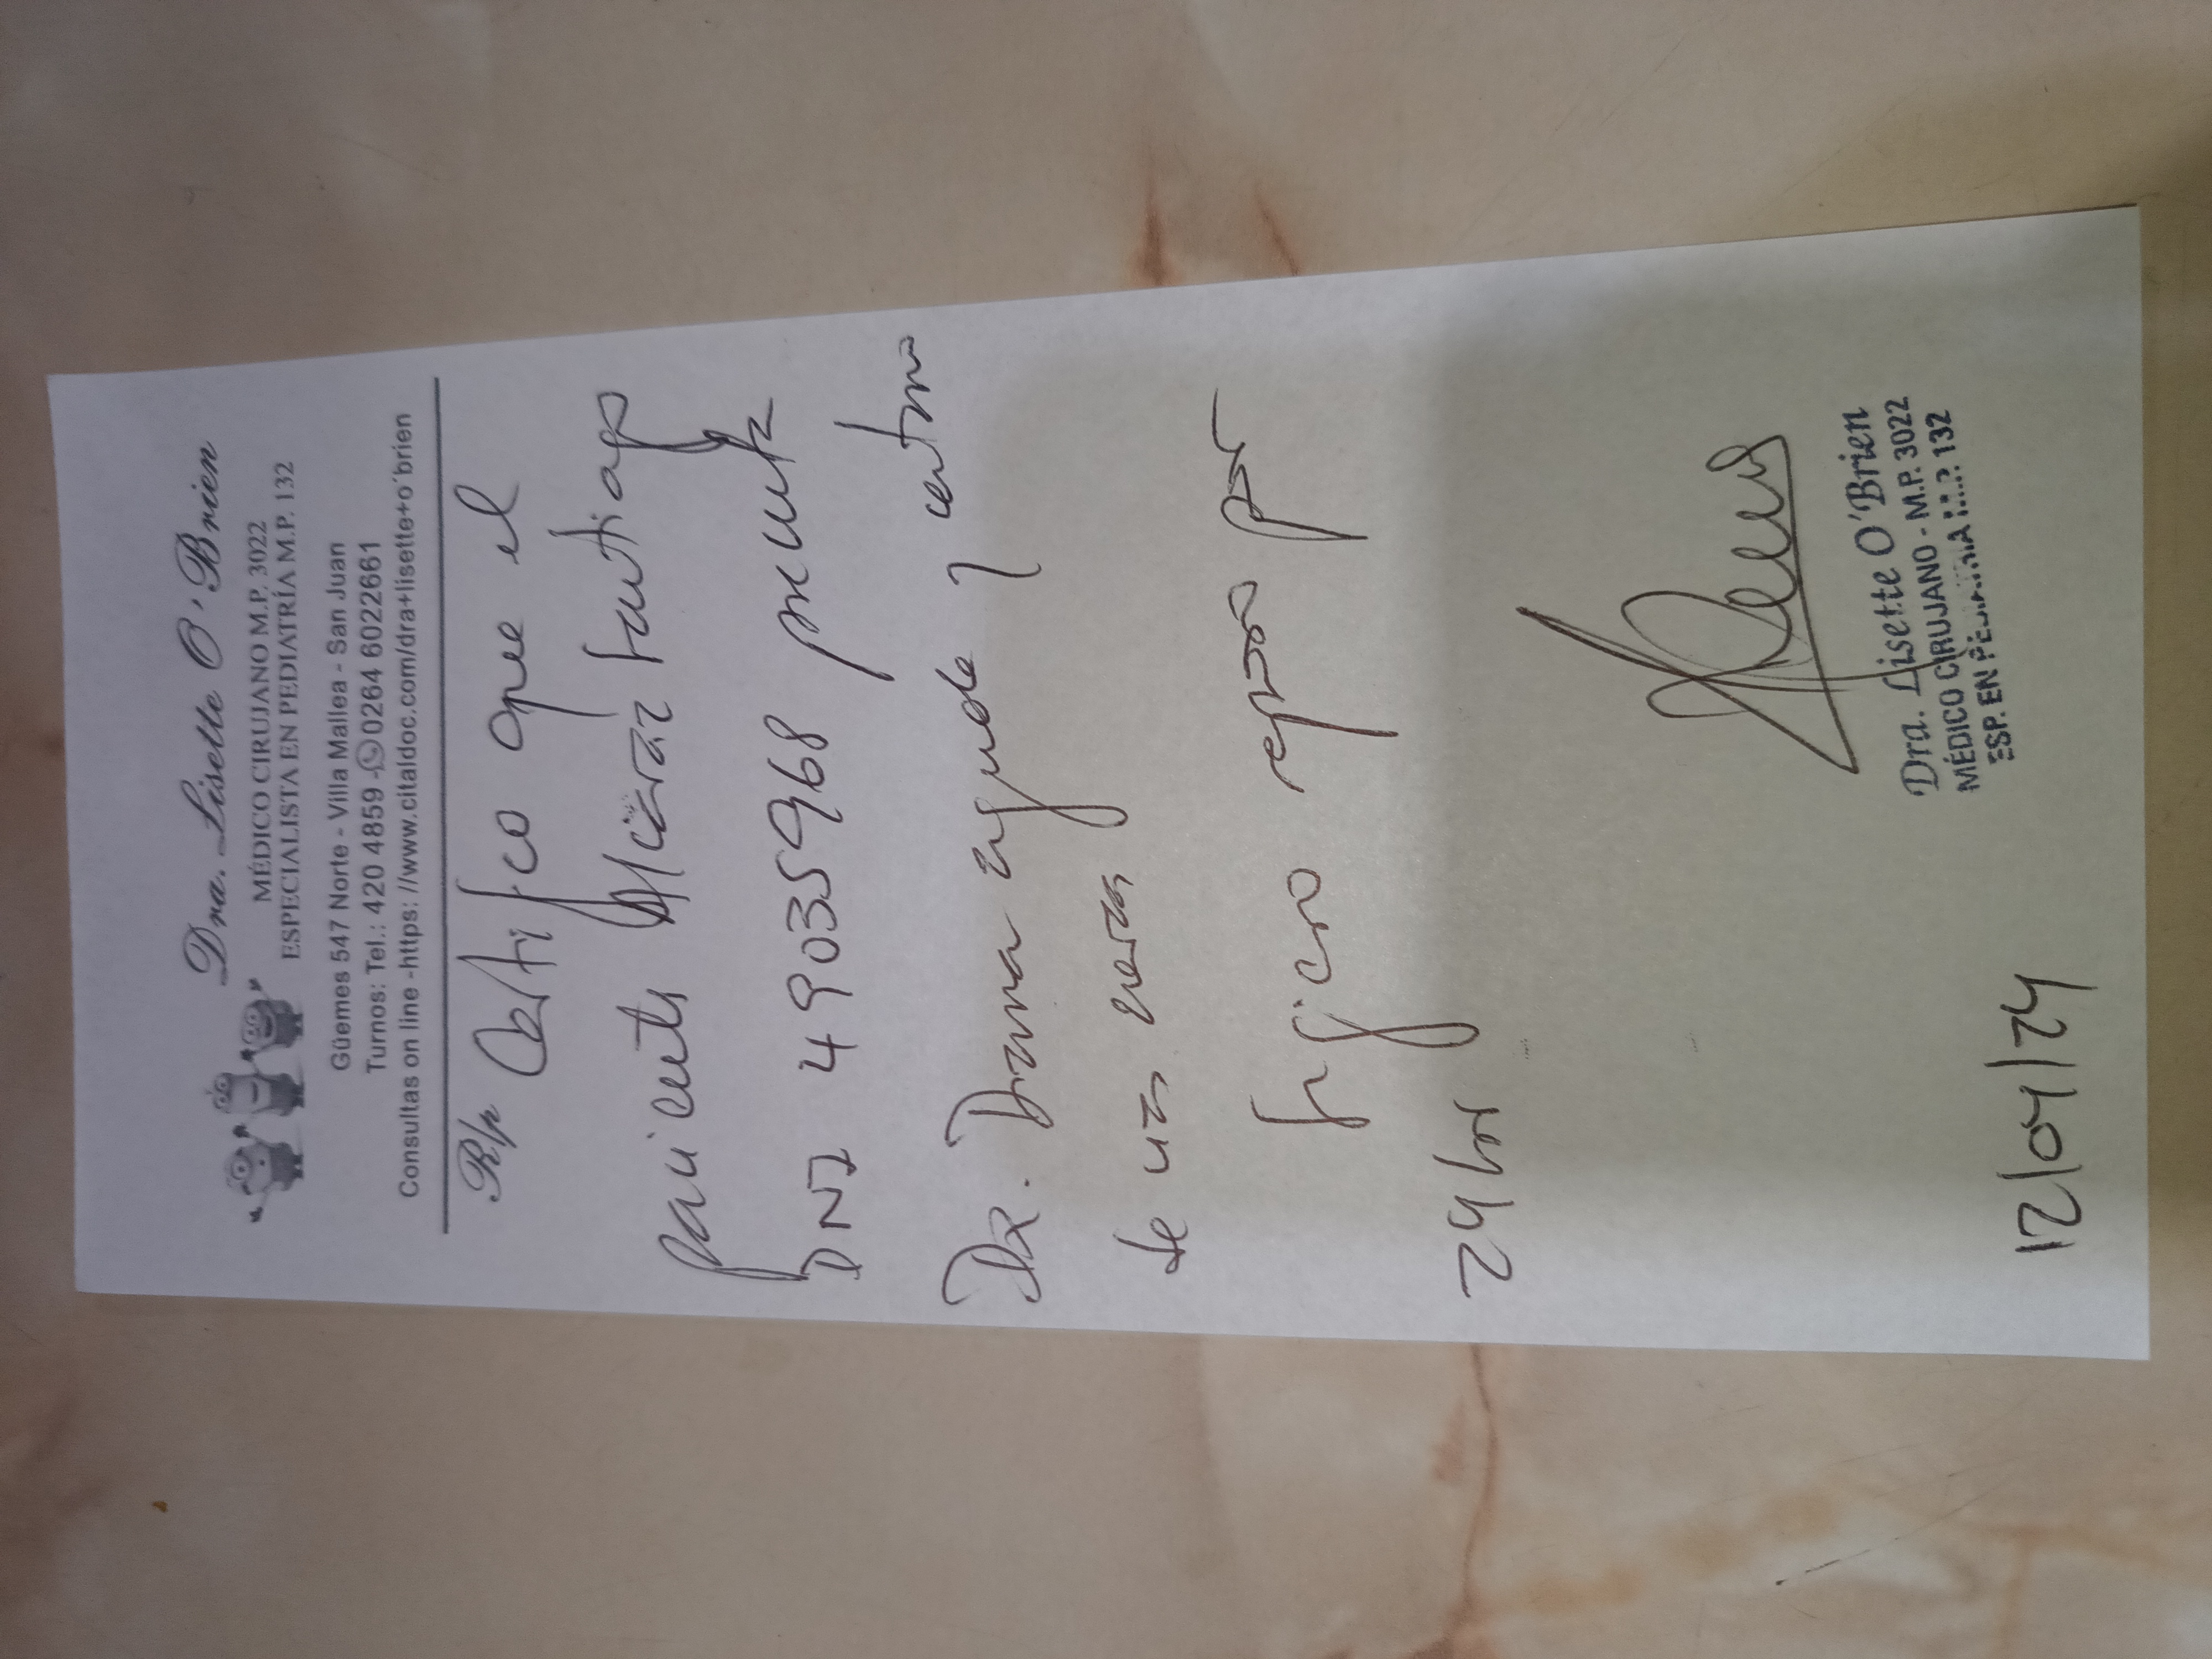 Dra. Lisette O'Brien
MÉDICO CIRUJANO M.P. 3022
ESPECIALISTA EN PEDIATRÍA M.P. 132
Güemes 547 Norte - Villa Mallea - San Juan
Turnos: Tel.: 420 4859 - 0264 6022661
Consultas on line -https: //www.citaldoc.com/dra+lisette+o'brien
R/p Certifico que el
paciente Alcaraz Santiago
DNI 49035968 presenta
DX. Diarrea aguda y
de reposo por
24 hs
Dra. Lisette O'Brien
MÉDICO CIRUJANO - M.P. 3022
ESP. EN PEDIATRIA M.P. 132
12/04/24